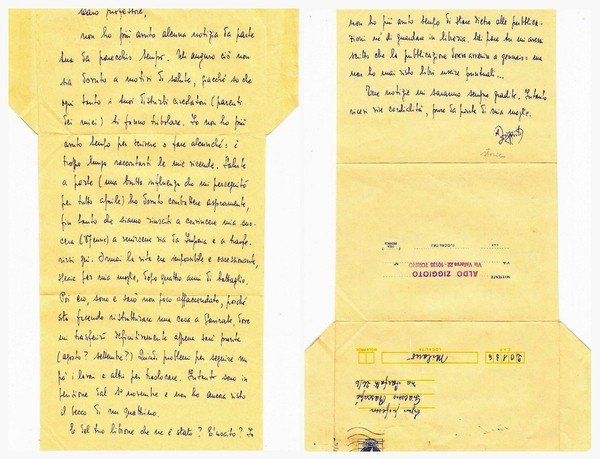 caro professore,
non ho più avuto alcuna notizia da parte
tua da parecchio tempo. Mi auguro ciò non
sia dovuto a motivi di salute, giacché so che
ogni tanto i tuoi disturbi circolatori (parenti
dei miei) ti fanno tribolare. Io non ho più
avuto tempo per scrivere o fare alcunché: è
troppo lungo raccontarti le mie vicende. Salute
a parte (una brutta influenza che mi perseguitò
per tutto aprile) ho dovuto combattere aspramente,
fin tanto che siamo riusciti a convincere mia suo-
cera (87enne) a venircene via da Imperia e a trasfe-
rirsi qui. Ormai la vita era impossibile e ossessionante,
specie per mia moglie, dopo quattro anni di battaglie.
Poi ero, sono e sarò non poco affaccendato, poiché
sto facendo ristrutturare una casa a dove
mi trasferirò definitivamente appena sarà pronta
(agosto? settembre?) Quindi problemi per seguire un
pò i lavori e altri per traslocare. Intanto sono in
pensione dal 1° novembre e non ho ancora visto
il becco di un quattrino.
E del tuo librone che ne è stato? È uscito? Io
non ho più avuto tempo di stare dietro alle pubblica-
zioni né di guardare in libreria. Mi pare tu mi avessi
scritto che la pubblicazione doveva avvenire a gennaio: ma
non ho mai visto libri uscire puntuali...
Tue notizie mi saranno sempre gradite. Intanto
ricevi vive cordialità, pure da parte di mia moglie.
AZiggioto
storico
MITTENTE
ALDO ZIGGIOTO
VIA
N°
Via Vallarsa 22 - 10135 TORINO
C.A.P.
LOCALITÀ
20136
Milano
C.A.P.
LOCALITÀ
SIGLA PROV.
Egr. professor
Giacomo
via